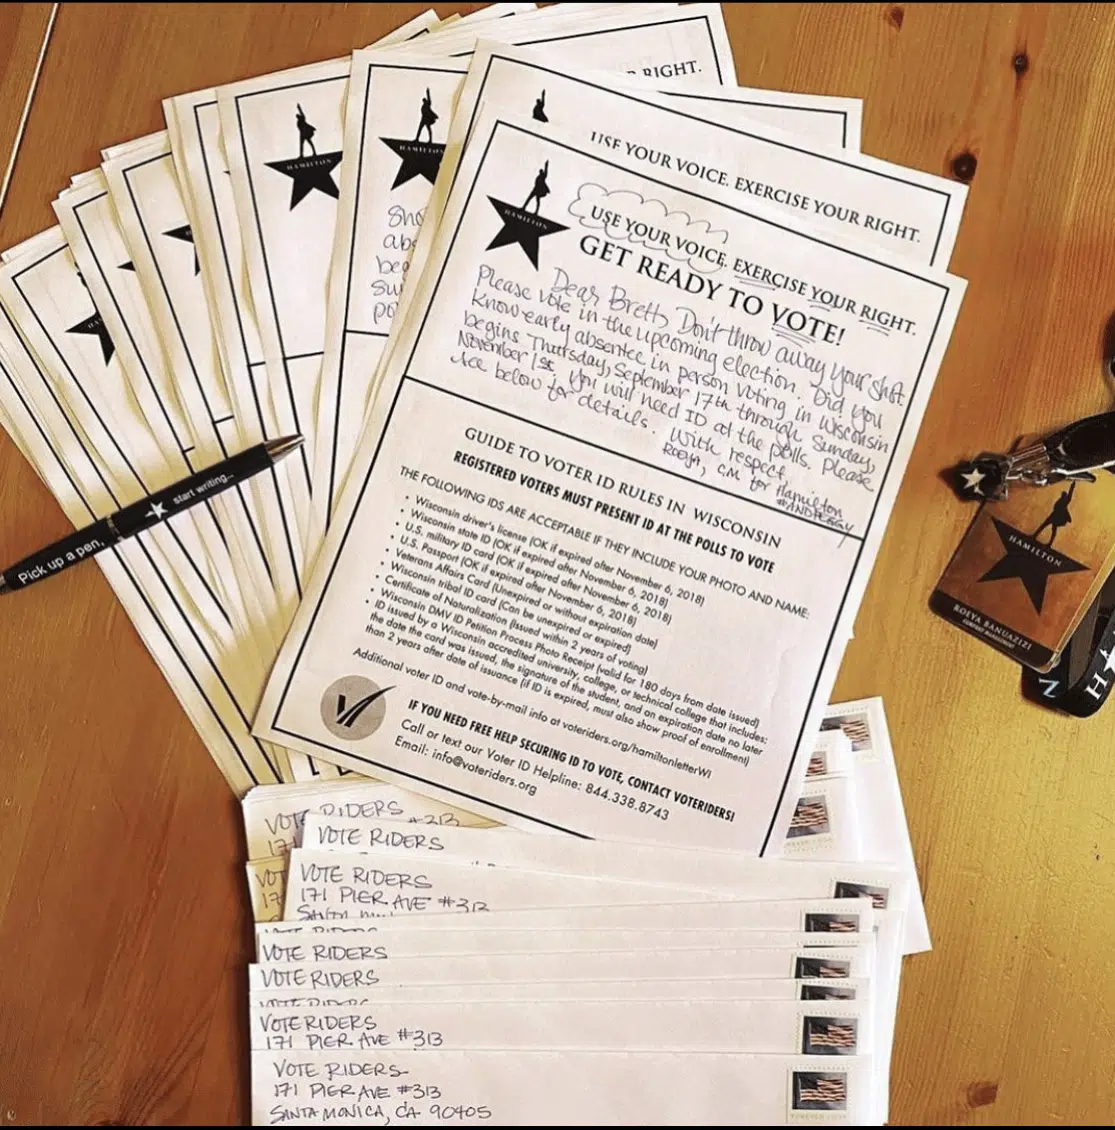 RIGHT.
USE YOUR VOICE. EXERCISE YOUR RIGHT.
HAMILTON
HAMILTON
HAMILTON
USE YOUR VOICE. EXERCISE YOUR RIGHT.
GET READY TO VOTE!
Dear Brett, Don't throw away your shot.
Please vote in the upcoming election. Did you
know early absentee in person voting in Wisconsin
begins Thursday, September 17th through Sunday,
November 1st. You will need ID at the polls. Please
see below for details. With respect,
Roeya, C.M. for Hamilton
#ANDPEGGY
GUIDE TO VOTER ID RULES IN WISCONSIN
REGISTERED VOTERS MUST PRESENT ID AT THE POLLS TO VOTE
THE FOLLOWING IDS ARE ACCEPTABLE IF THEY INCLUDE YOUR PHOTO AND NAME:
• Wisconsin driver's license (OK if expired after November 6, 2018)
• Wisconsin state ID (OK if expired after November 6, 2018)
• U.S. military ID card (OK if expired after November 6, 2018)
• U.S. Passport (OK if expired after November 6, 2018)
• Veterans Affairs Card (Unexpired or without expiration date)
• Wisconsin tribal ID card (Can be unexpired or expired)
• Certificate of Naturalization (Issued within 2 years of voting)
• Wisconsin DMV ID Petition Process Photo Receipt (valid for 180 days from date issued)
• ID issued by a Wisconsin accredited university, college, or technical college that includes:
the date the card was issued, the signature of the student, and an expiration date no later
than 2 years after date of issuance (if ID is expired, must also show proof of enrollment)
Additional voter ID and vote-by-mail info at voteriders.org/hamiltonletterWI
IF YOU NEED FREE HELP SECURING ID TO VOTE, CONTACT VOTERIDERS!
Call or text our Voter ID Helpline: 844.338.8743
Email: info@voteriders.org
sho
abs
beg
Su
po
Pick up a pen, start writing...
HAMILTON
ROEYA BANUAZIZI
COMPANY MANAGEMENT
N
H
VOTE RIDERS
171 #313
VOTE RIDERS
VOT
17
VOTE RIDERS
171 PIER AVE #313
SANTA
VOTE RIDERS
VOTE RIDERS
VOTE RIDERS
VOTE RIDERS
VOTE RIDERS
171 PIER AVE #313
VOTE RIDERS
171 PIER AVE #313
SANTA MONICA, CA 90405